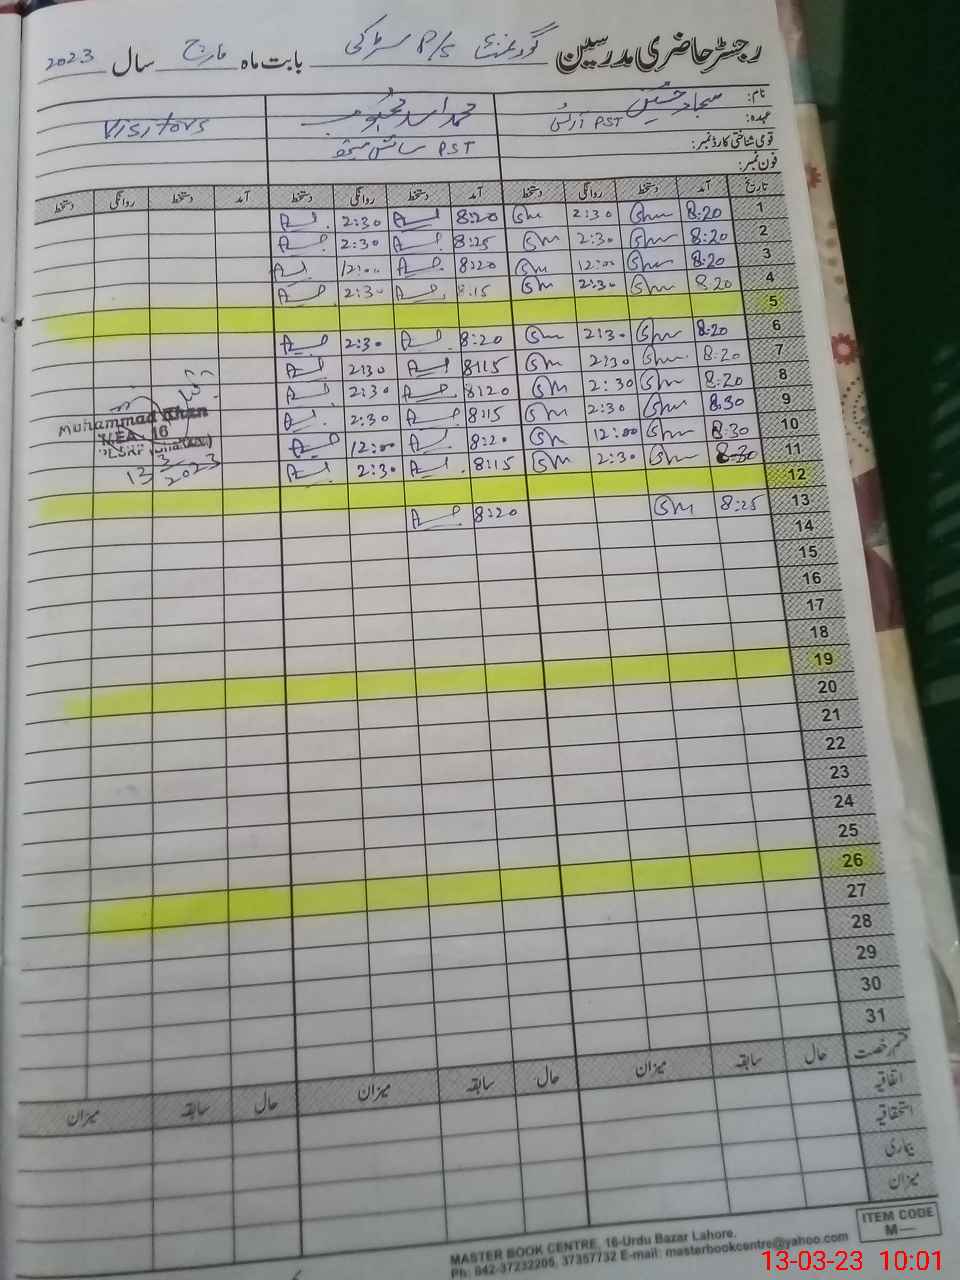 رجسٹر حاضری مدرسین گورنمنٹ P/S سڑاکی بابت ماہ مارچ سال 2023
نام: سجاد حسین محمد اسد محبوب Visitors
عہدہ: PST آرٹس
قومی شناختی کارڈ نمبر: PST سائنس
فون نمبر:
تاریخ آمد دستخط روانگی دستخط آمد دستخط روانگی دستخط آمد دستخط روانگی دستخط
1 8:20 Gm 2:30 Gm 8:20 2:30
2 8:20 Gm 2:30 Gm 8:25 2:30
3 8:20 Gm 12:00 Gm 8:20 12:00
4 8:20 Gm 2:30 Gm 8:15 2:30
5
6 8:20 Gm 2:30 Gm 8:20 2:30
7 8:20 Gm 2:30 Gm 8:15 2:30
8 8:20 Gm 2:30 Gm 8:20 2:30
9 8:30 Gm 2:30 Gm 8:15 2:30
10 8:30 Gm 12:00 Gm 8:20 12:00
11 8:30 Gm 2:30 Gm 8:15 2:30
12
13 8:25 Gm 8:20
14
15
16
17
18
19
20
21
22
23
24
25
26
27
28
29
30
31
Muhammad Khan
MEA 16
13 3 2023
قسم رخصت حال سابقہ میزان حال سابقہ میزان حال سابقہ میزان
اتفاقیہ
استحقاقیہ
بیماری
میزان
ITEM CODE
M—
MASTER BOOK CENTRE, 16-Urdu Bazar Lahore.
Ph: 042-37232205, 37357732 E-mail: masterbookcentre@yahoo.com
13-03-23 10:01